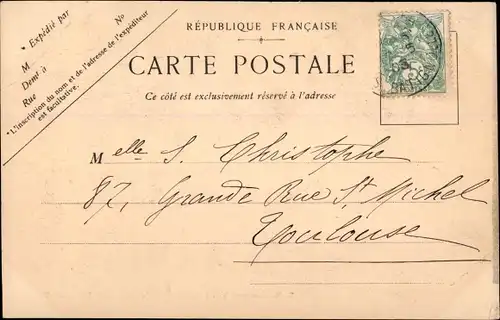 RÉPUBLIQUE FRANÇAISE
CARTE POSTALE
Ce côté est exclusivement réservé à l'adresse
* Expédié par
N°
M
Demt à
Rue
*L'inscription du nom et de l'adresse de l'expéditeur
est facultative.
Melle S. Christophe
87, Grande Rue St Michel
Toulouse